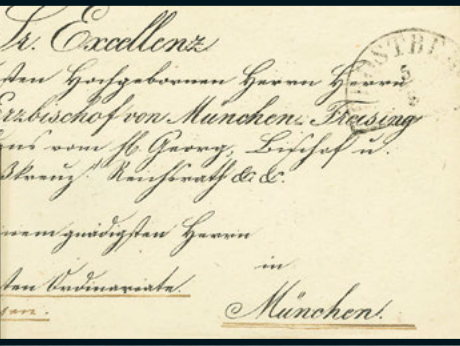 Sr. Excellenz
sten Hochgebornen Herrn Herrn
OSTBE
5
Erzbischof von München-Freising
ens vom hl. Georg, Bischof u.
ßkreuz Reichsrath &c &c.
nem gnädigsten Herrn
in
ten Ordinariate.
München.